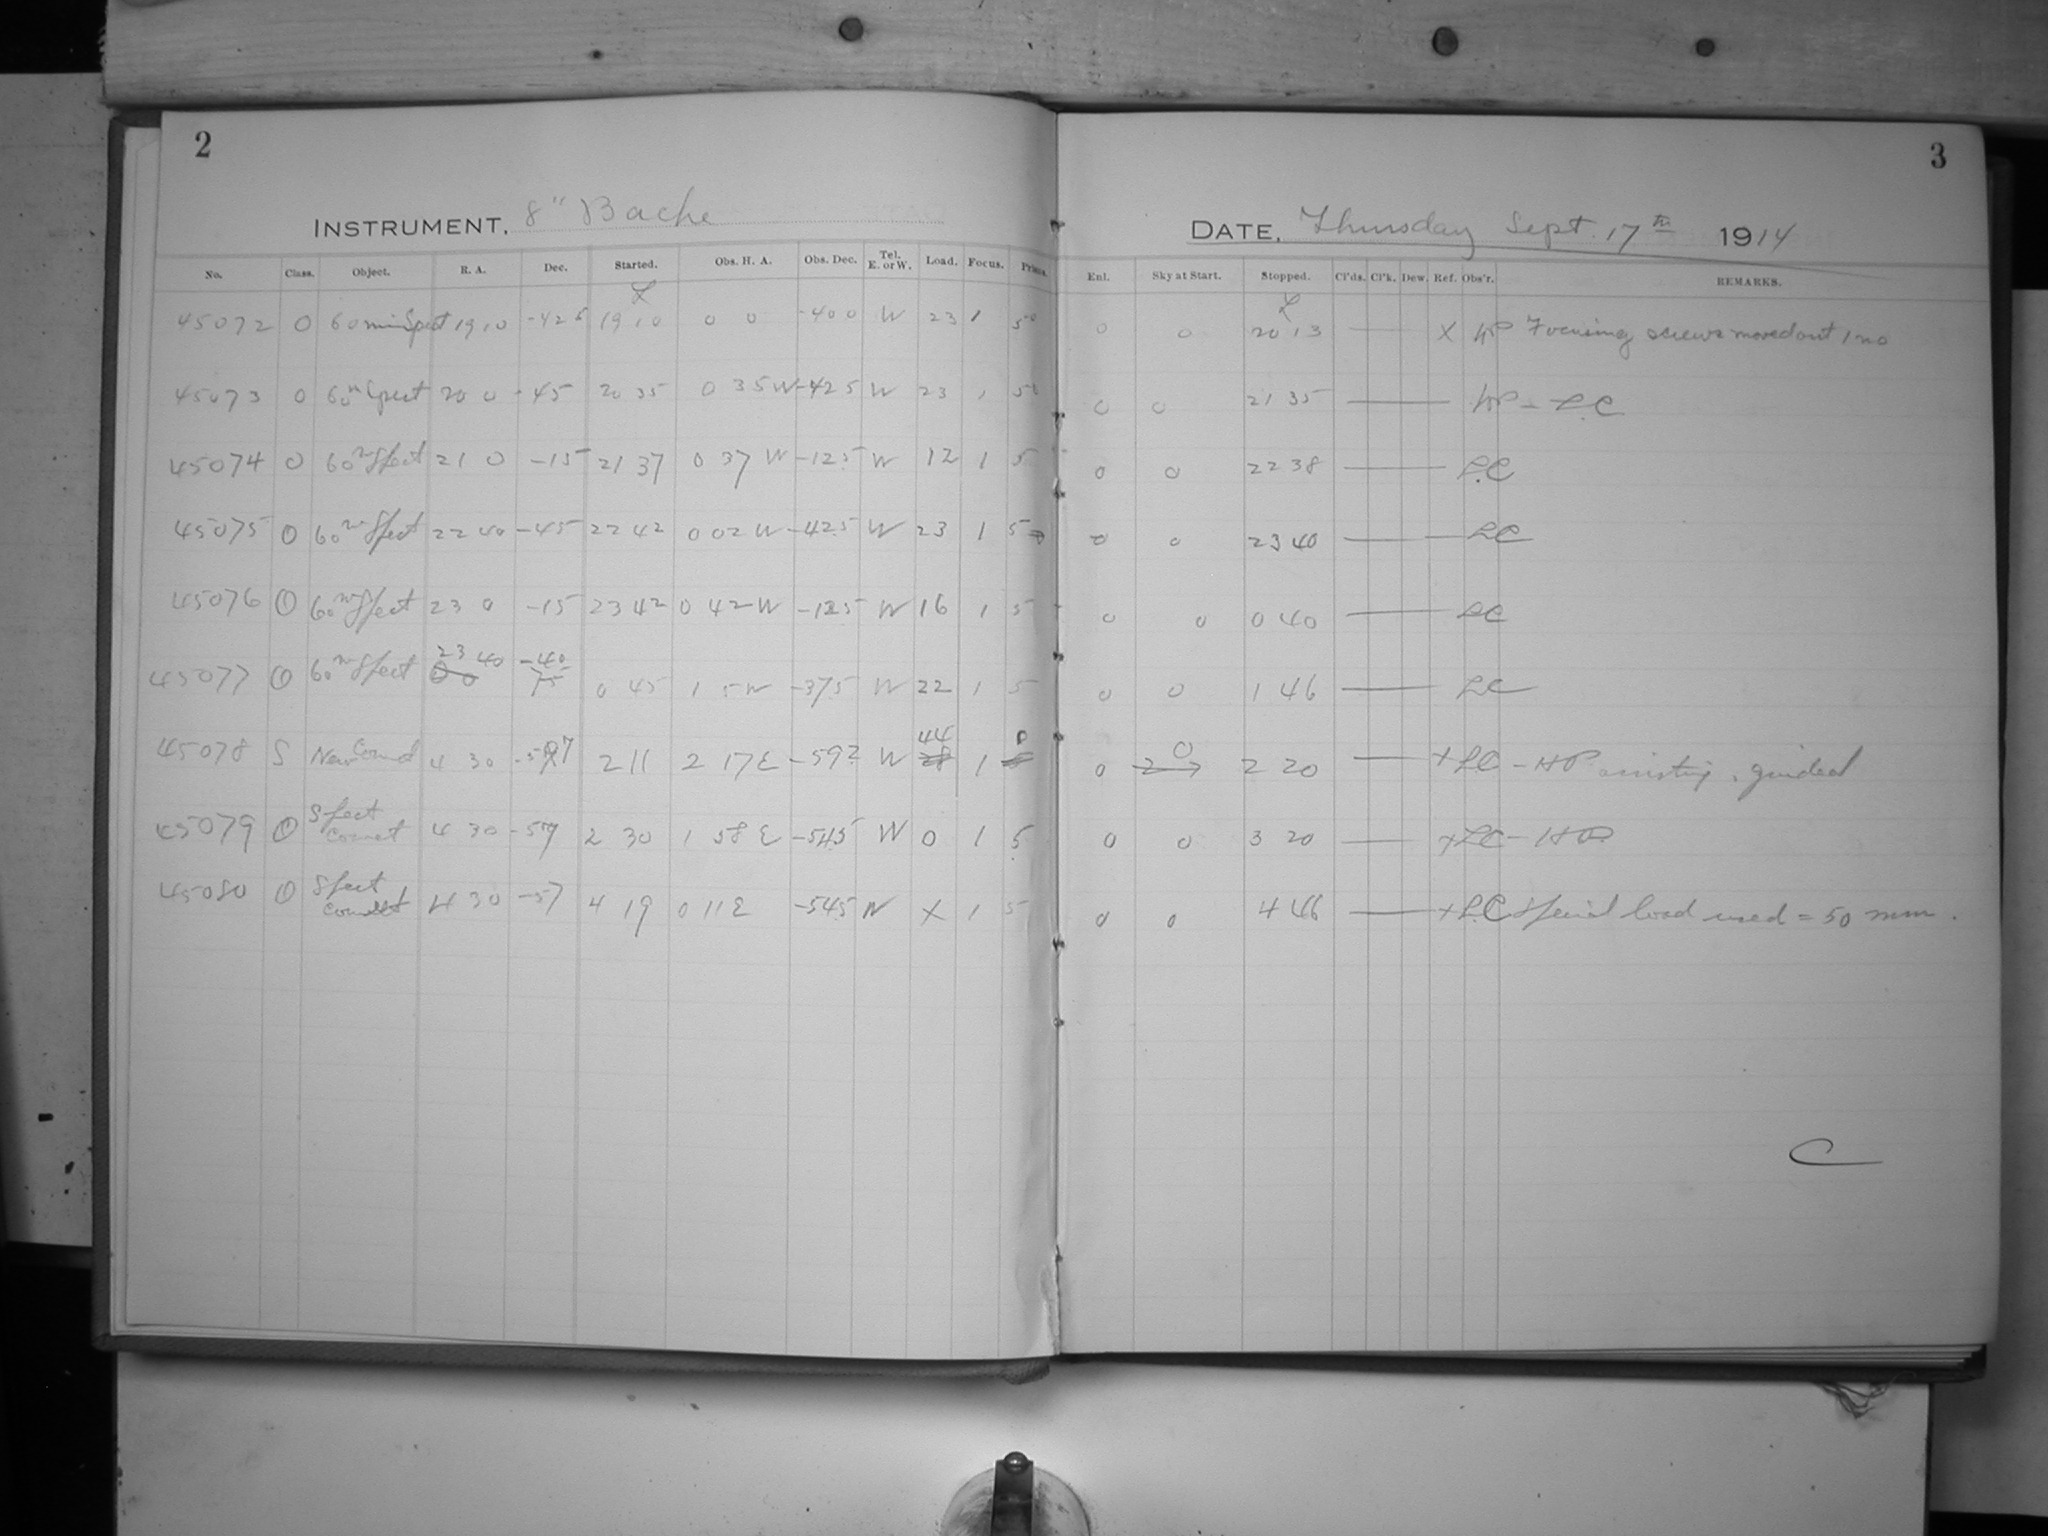 2
INSTRUMENT, 8" Bache
No. Class. Object. R. A. Dec. Started. Obs. H. A. Obs. Dec. Tel. E. or W. Load. Focus. Prism.
45072 O 60 min Spect 19 10 -42 5 19 10 0 0 -40 0 W 23 1 5
45073 O 60m Spect 20 0 -45 20 35 0 35 W -42 5 W 23 1 5
45074 O 60m Spect 21 0 -15 21 37 0 37 W -12 5 W 12 1 5
45075 O 60m Spect 22 40 -45 22 42 0 02 W -42 5 W 23 1 5
45076 O 60m Spect 23 0 -15 23 42 0 42 W -12 5 W 16 1 5
45077 O 60m Spect 23 40 -40 0 45 1 5 W -37 5 W 22 1 5
45078 S 4 30 -57 2 11 2 17 E -59 2 W 44 1 0
45079 O Spect Comet 4 30 -57 2 30 1 58 E -54 5 W 0 1 5
45080 O Spect Comet 4 30 -57 4 19 0 11 E -54 5 W X 1 5
3
DATE, Thursday Sept. 17th 1914
Enl. Sky at Start. Stopped. Cl'ds. Cl'k. Dew. Ref. Obs'r. REMARKS.
0 0 20 13 X HP Focusing screws moved out 1 no
0 0 21 35 HP - LC
0 0 22 38 LC
0 0 23 40 LC
0 0 0 40 LC
0 0 1 46 LC
0 0 2 20 + LC - HP assisting, guided
0 0 3 20 + LC - HP
0 0 4 46 + LC Special load used = 50 mm.
C